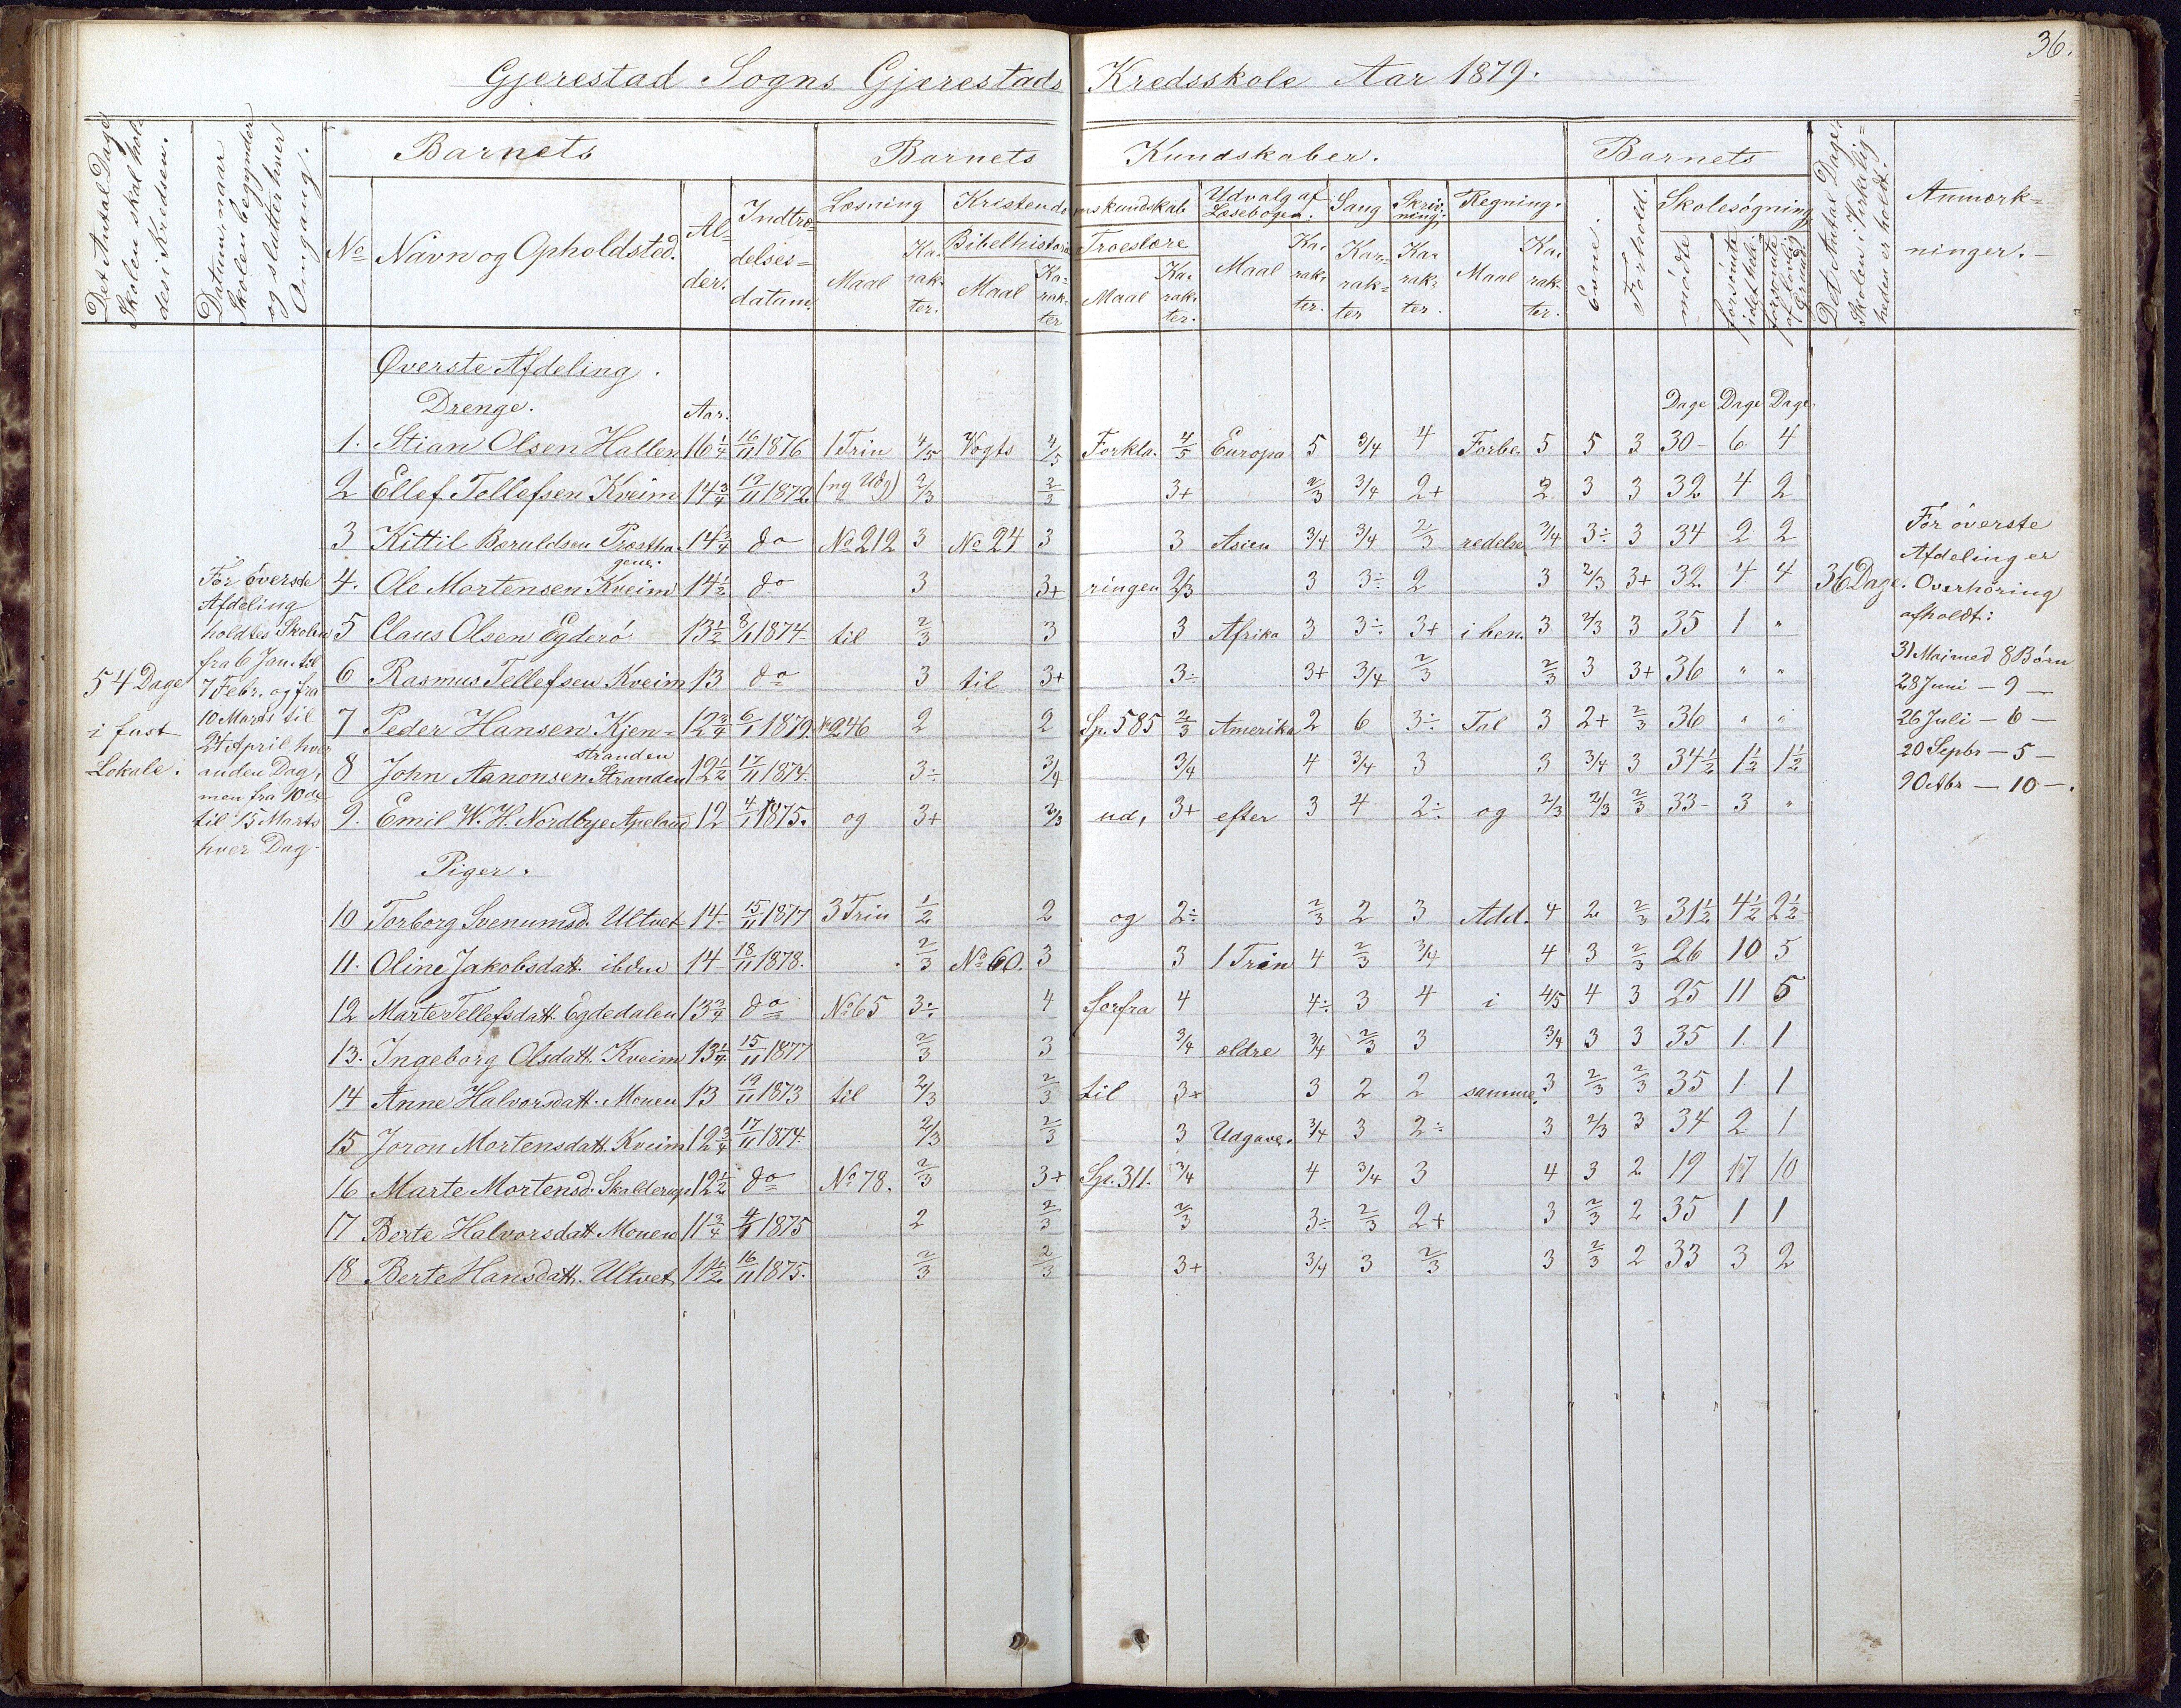 36.
Gjerestad Sogns Gjerestads Kredsskole Aar 1879.
Det Antal Dage Skolen skal holdes i Kredsen.
Datum, naar Skolen begynder og slutter hver Omgang.
Barnets
No
Navn og Opholdsted.
Alder.
Indtrædelsesdatum.
Barnets Kundskaber.
Læsning
Maal
Karakter.
Kristendomskundskab
Bibelhistorie
Maal
Karakter
Troeslære
Maal
Karakter.
Udvalg af Læsebogen.
Maal
Karakter.
Sang
Karakter
Skrivning.
Karakter.
Regning.
Maal
Karakter.
Barnets
Evne.
Forhold.
Skolesøgning
mødte
forsømte i det hele
forsømte af lovlig Grund
Det Antal Dage Skolen i Virkelig=heden er holdt.
Anmærk=
ninger.
Øverste Afdeling.
Drenge. Aar. Dage Dage Dage
1. Stian Olsen Hallen 16 1/4 16/11 1876 1 Trin 4/5 Vogts 4/5 Forkla. 4/5 Europa 5 3/4 4 Forbe. 5 5 3 30 6 4
2 Ellef Tellefsen Kveim 14 3/4 1872 (ny Udg) 2/3 2/3 3+ 2/3 3/4 2+ 2 3 3 32 4 2
3 Kittil Beruldsen Prestha.gene. 14 3/4 do No 212 3 No 24 3 3 Asien 3/4 3/4 2/3 redelse 3/4 3÷ 3 34 2 2
4. Ole Mortensen Kveim 14 1/2 do 3 3+ ringen 2/3 3 3÷ 2 3 2/3 3+ 32 4 4
5 Claus Olsen Egderö 13 1/2 8/1 1874 til 2/3 3 3 Afrika 3 3÷ 3+ i ben. 3 2/3 3 35 1 "
6 Rasmus Tellefsen Kveim 13 do 3 til 3+ 3÷ 3+ 3/4 2/3 2/3 3 3+ 36 " "
7 Peder Hansen Kjen=stranden 12 3/4 6/1 1879. No 246 2 2 Sp. 585 2/3 Amerika 2 6 3÷ Tal 3 2+ 2/3 36 " "
8 John Aanonsen Stranden 12 1/2 17/11 1874. 3÷ 3/4 3/4 4 3/4 3 3 3/4 3 34 1/2 1 1/2 1 1/2
9. Emil W. H. Nordbye Apeland 12 4/1 1875. og 3+ 2/3 ud, 3+ efter 3 4 2÷ og 2/3 2/3 2/3 33 3 "
Piger.
10 Torborg Svenumsd. Ultvet 14 15/11 1877 3 Trin 1/2 2 og 2÷ 2/3 2 3 Add. 4 2 2/3 31 1/2 4 1/2 2 1/2
11. Oline Jakobsdatt. ibdm 14 18/11 1878. 2/3 No 60. 3 3 1 Trin 4 2/3 3/4 4 3 2/3 26 10 5
12 Marte Tellefsdatt. Egdedalen 13 3/4 do No 65 3÷ 4 forfra 4 4÷ 3 4 i 4/5 4 3 25 11 5
13. Ingeborg Olsdatt. Kveim 13 1/4 15/11 1877 2/3 3 3/4 ældre 3/4 2/3 3 3/4 3 3 35 1. 1
14 Anne Halvorsdatt. Mouen 13 19/11 1873 til 2/3 2/3 til 3+ 3 2 2 samme. 3 2/3 2/3 35 1 1
15 Joron Mortensdatt. Kveim 12 3/4 17/11 1874. 2/3 2/3 3 Udgave. 3/4 3 2÷ 3 2/3 3 34 2 1
16 Marte Mortensd. Skalderup 12 1/2 do No 78. 2/3 3+ Sp. 311. 3/4 4 3/4 3 4 3 2 19 17 10
17 Berte Halvorsdatt Mouen 11 3/4 1875 2 2/3 2/3 3÷ 2/3 2+ 3 2/3 2 35 1 1
18 Berte Hansdatt. Ultvet 11 1/2 16/11 1875. 2/3 2/3 3+ 3/4 3 2/3 3 2/3 2 33 3 2
54 Dage
i fast
Lokale.
For överste
Afdeling
holdtes Skolen
fra 6 Jan. til
7 Febr. og fra
10 Marts til
24 April hver
anden Dag,
men fra 10de
til 15 Marts
hver Dag.
36 Dage.
For överste
Afdeling er
Overhöring
afholdt:
31 Mai med 8 Börn
28 Juni — 9 —
26 Juli — 6 —
20 Sepbr — 5 —
— 10 —.